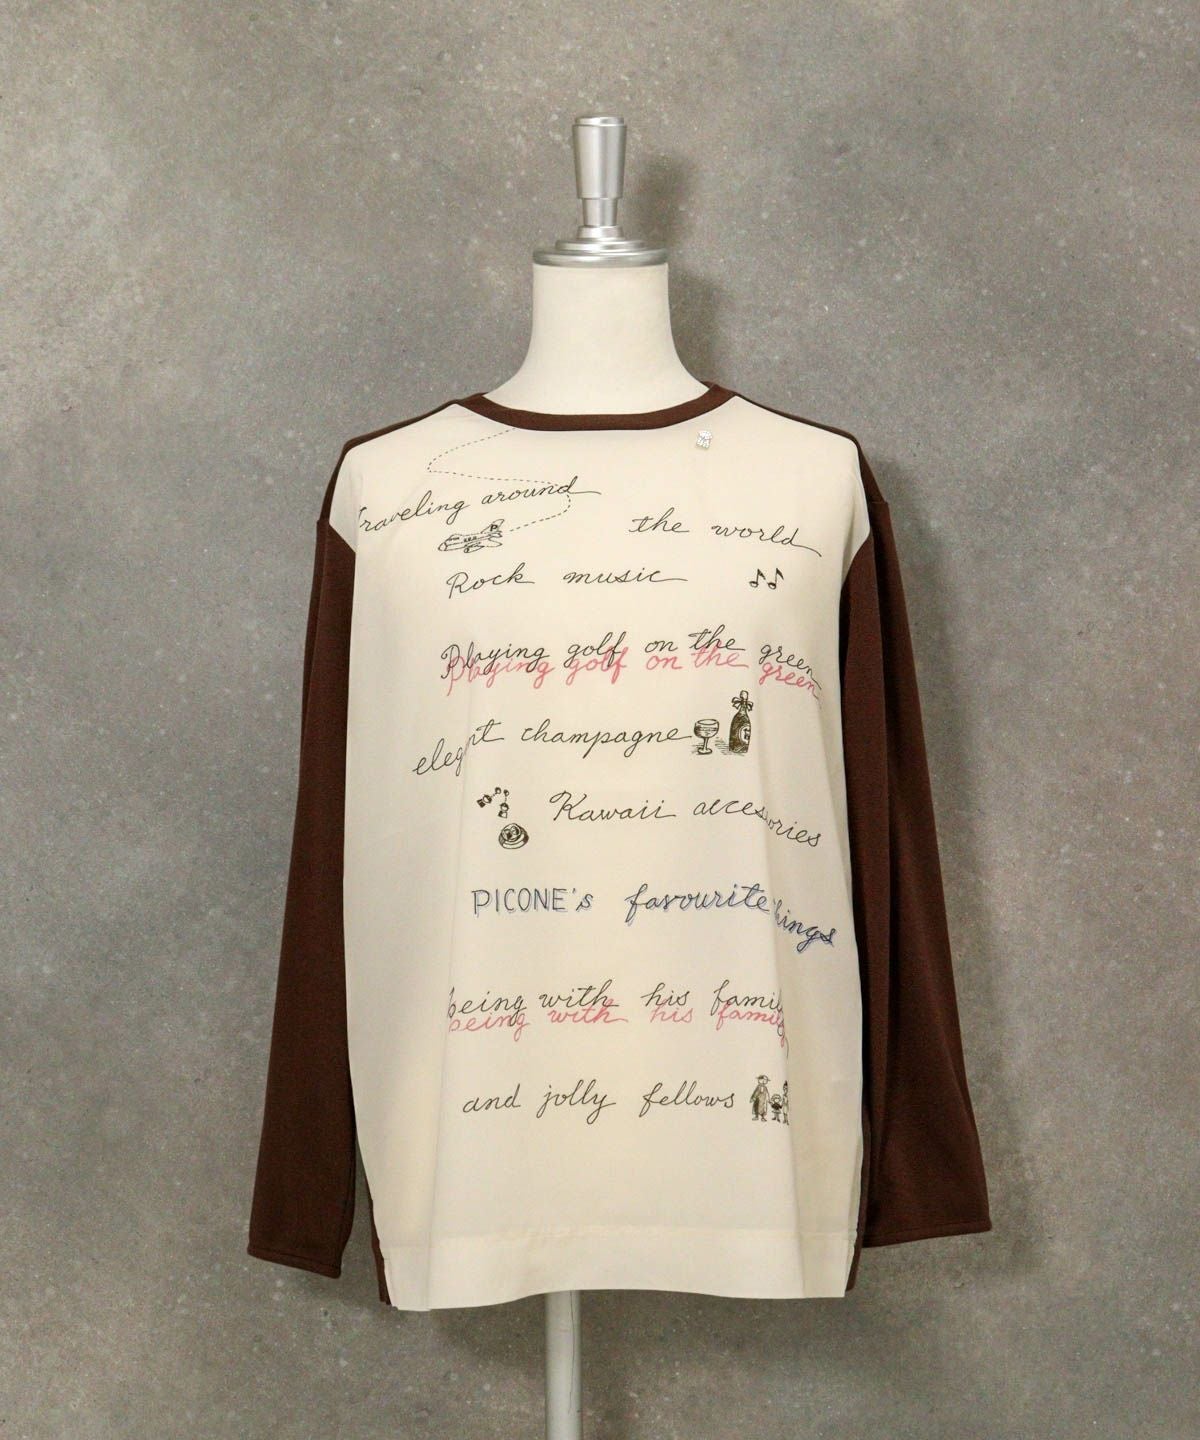 Traveling around
the world
Rock music
Playing golf on the green
Playing golf on the green
elegant champagne
Kawaii accessories
PICONE's favourite things
being with his family
being with his family
and jolly fellows